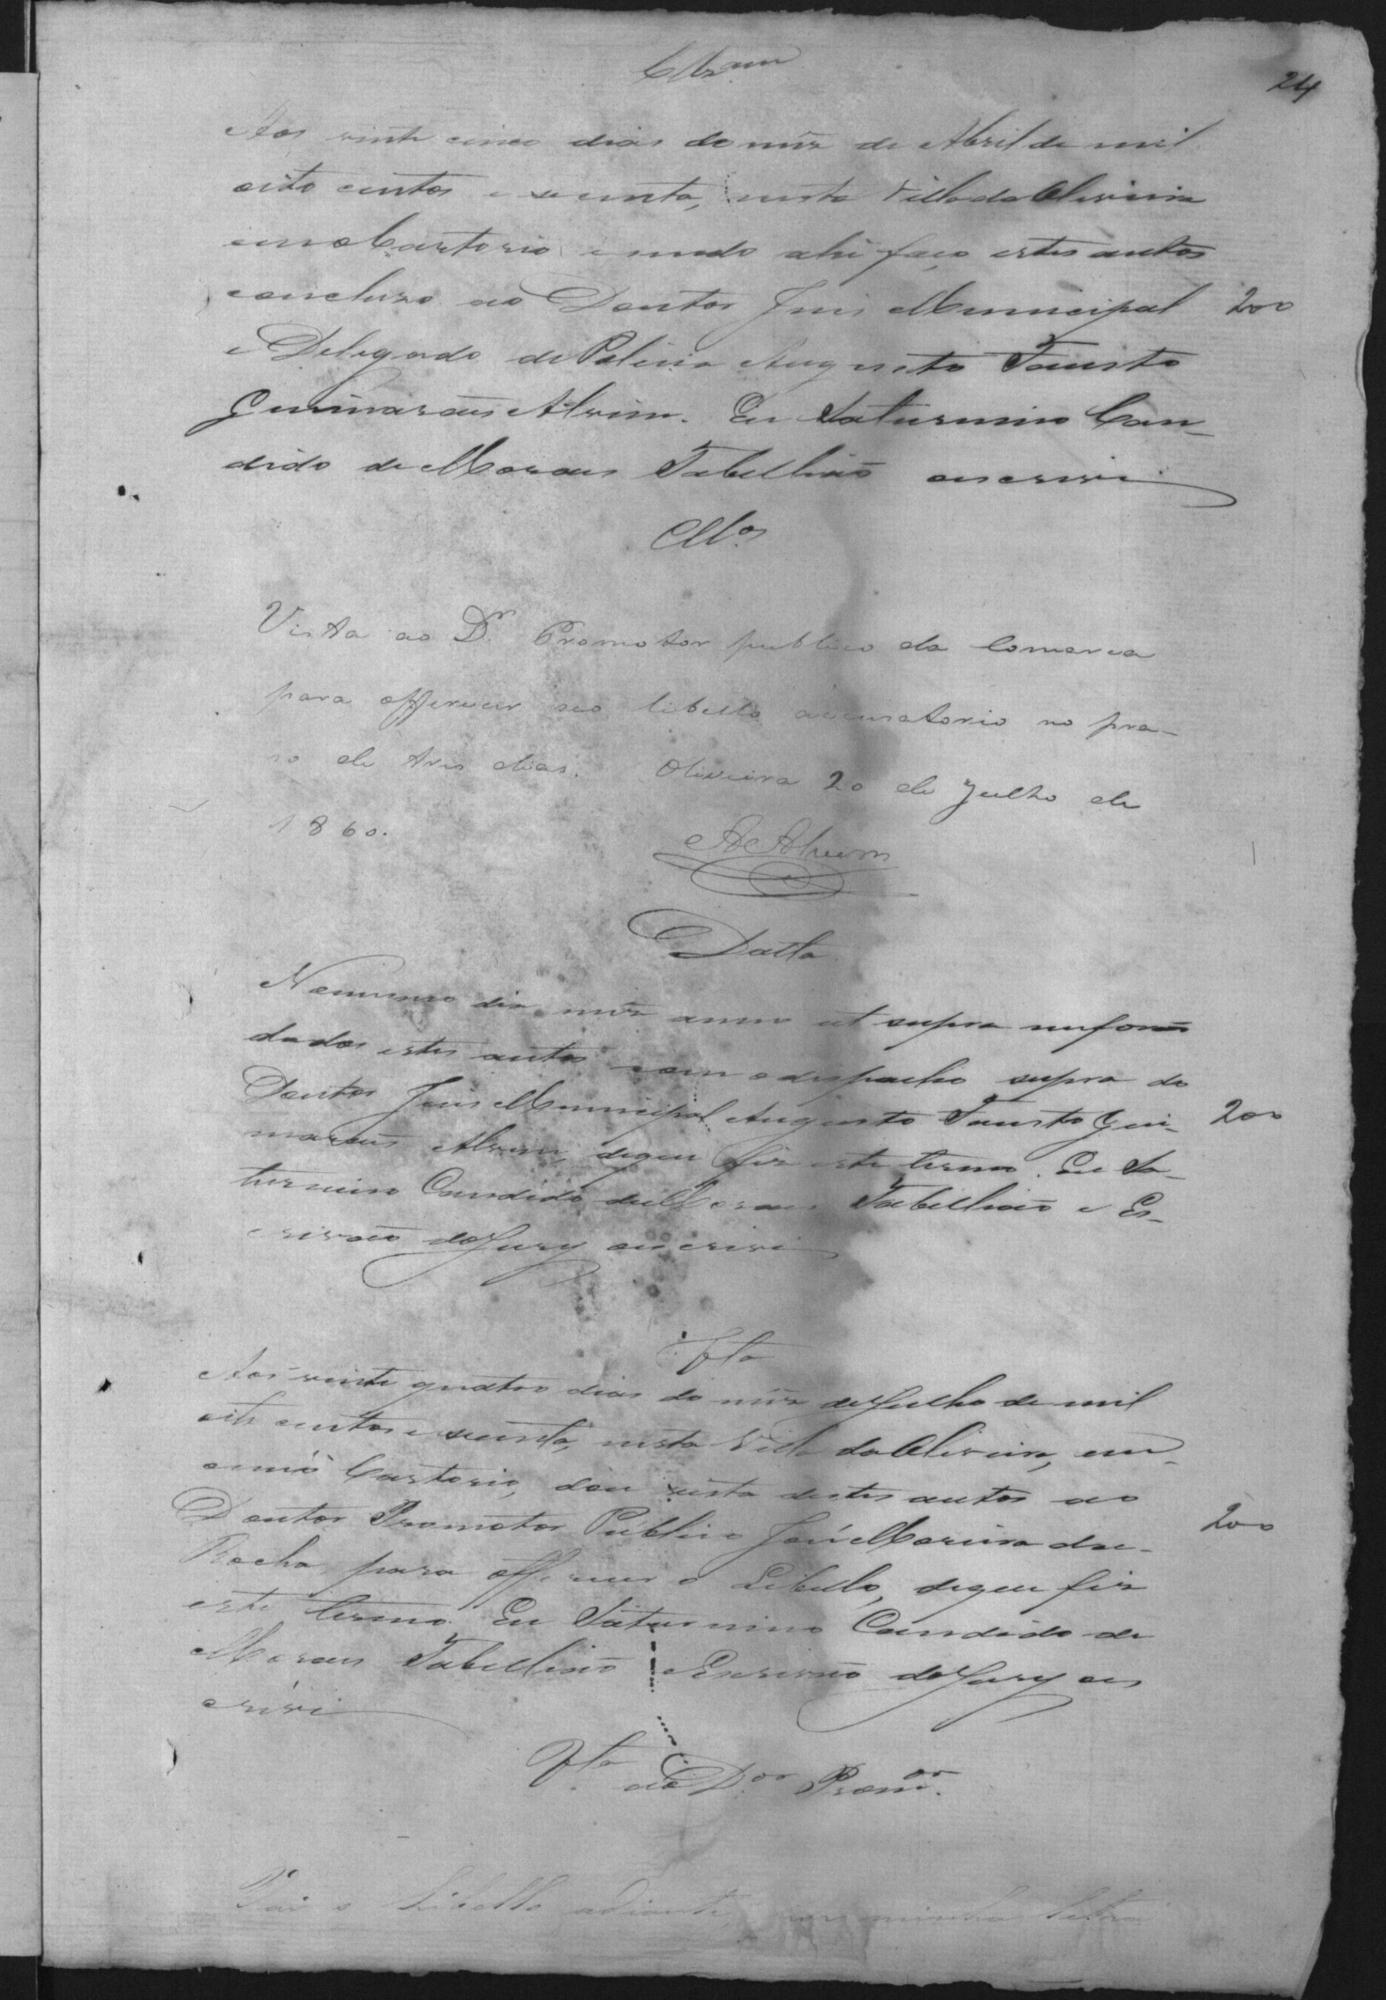 24
Clzam
Aos vinte cinco dias do mez de Abril de mil
oito centos e secenta, nesta Villa da Oliveira
em o Cartorio e sendo ahi faço estes autos
concluzo ao Doutor Juis Municipal
200
e Delegado de Policia Augusto Fausto
Guimaraes Alvim. Eu Saturnino Can-
dido de Moraes Tabellião os escrevi
Cllos
Vista ao Dr. Promotor publico da Comarca
para offerecer seo libello accusatorio no pra-
so de tres dias. Oliveira 20 de Julho de
1860.
A Alvim
Datta
No mesmo dia mez anno ut supra me forão
dados estes autos com o despacho supra do
Doutor Juis Municipal Augusto Fausto Gui-
200
maraes Alvim, de que fiz este termo. Eu Sa-
turnino Candido de Moraes Tabellião e Es-
crivão do Jury os escrevi
Vta
Aos vinte quatro dias do mez de Julho de mil
oito centos e secenta, nesta Villa da Oliveira, em
o meo Cartorio, dou vista destes autos ao
Doutor Promotor Publico José Moreira da
200
Rocha para offerecer o Libello, de que fiz
este termo. Eu Saturnino Candido de
Moraes Tabellião Escrivão do Jury os
escrivi
Vta ao Dor Promor.
Vai o Libello adiante, por minha letra